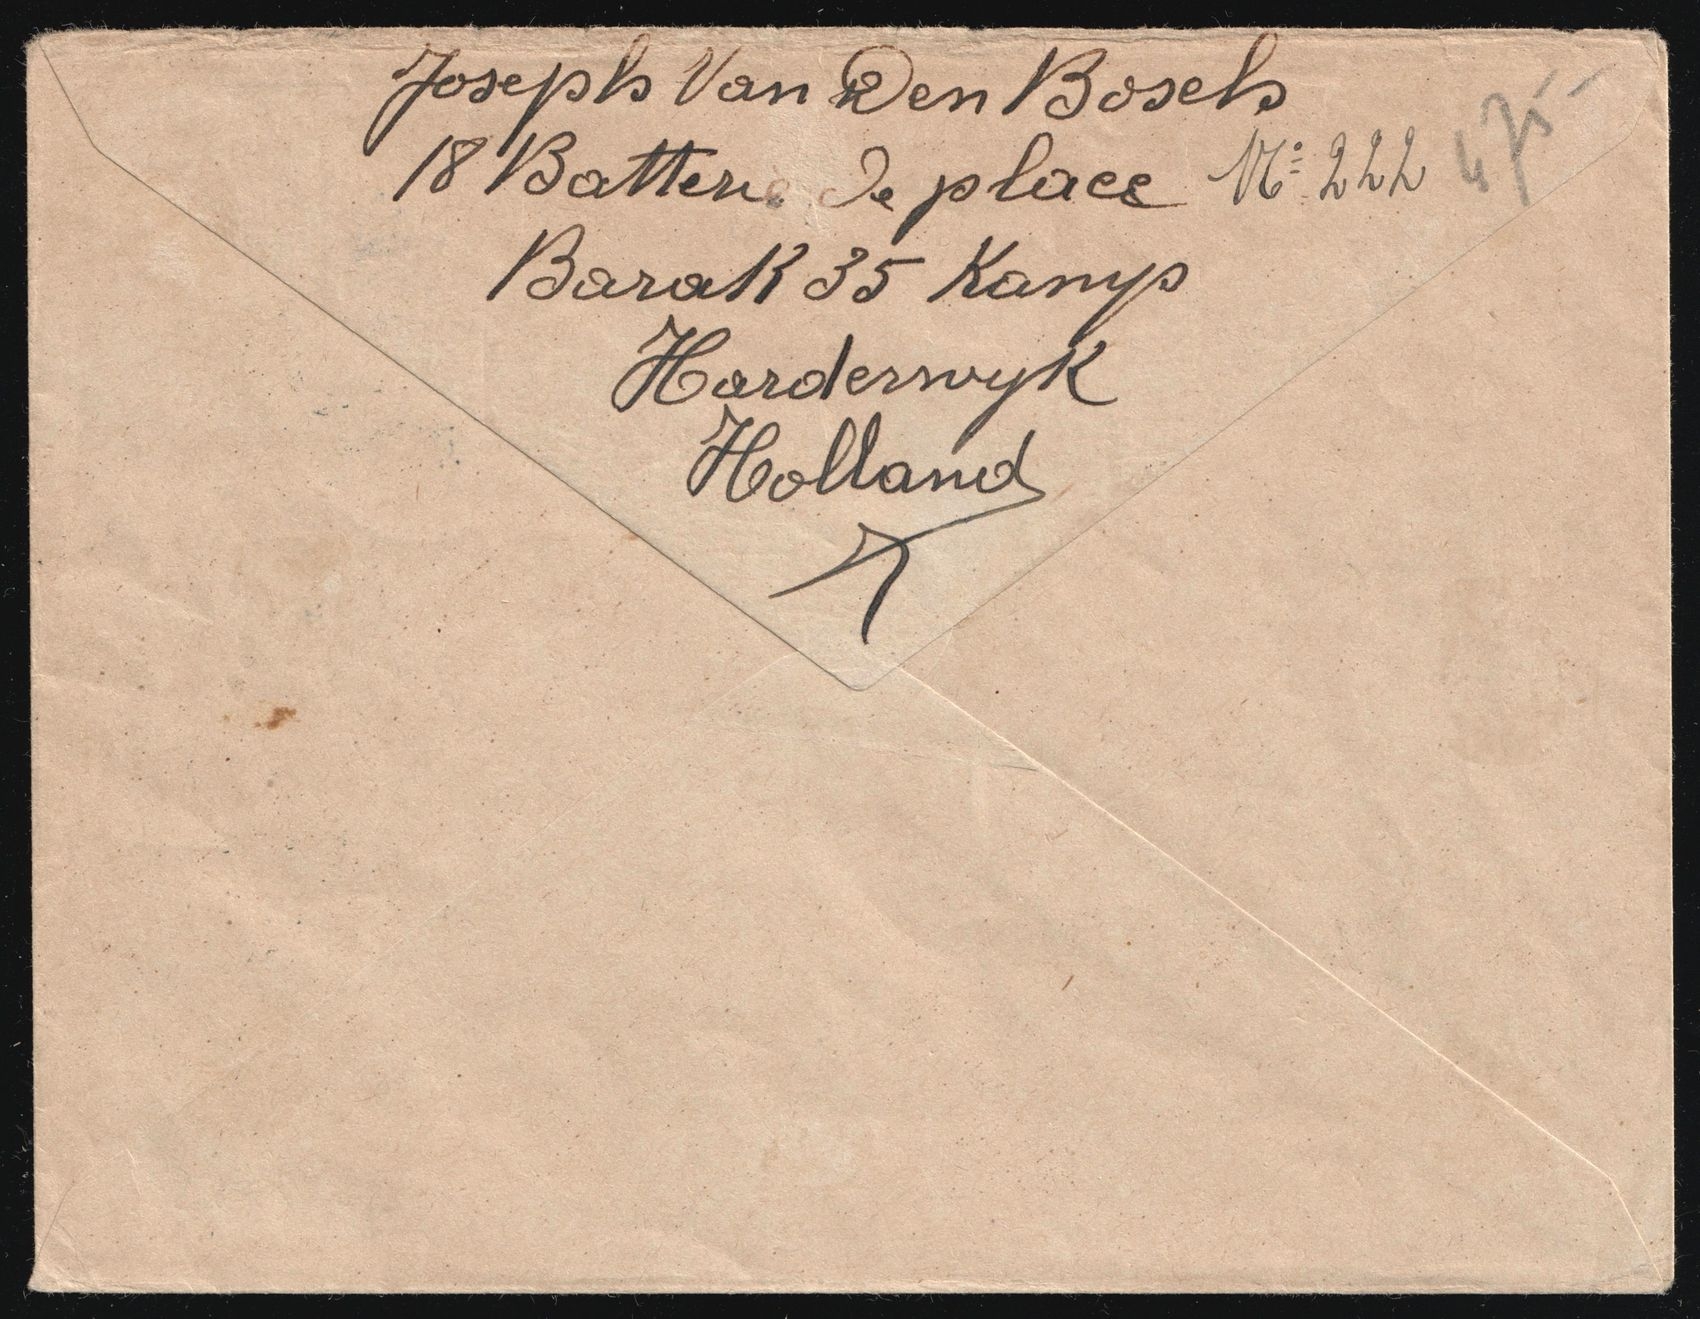 Joseph Van Den Bosch
18 Batterie de place Nº 222
Barak 35 Kamp
Harderwyk
Holland
475